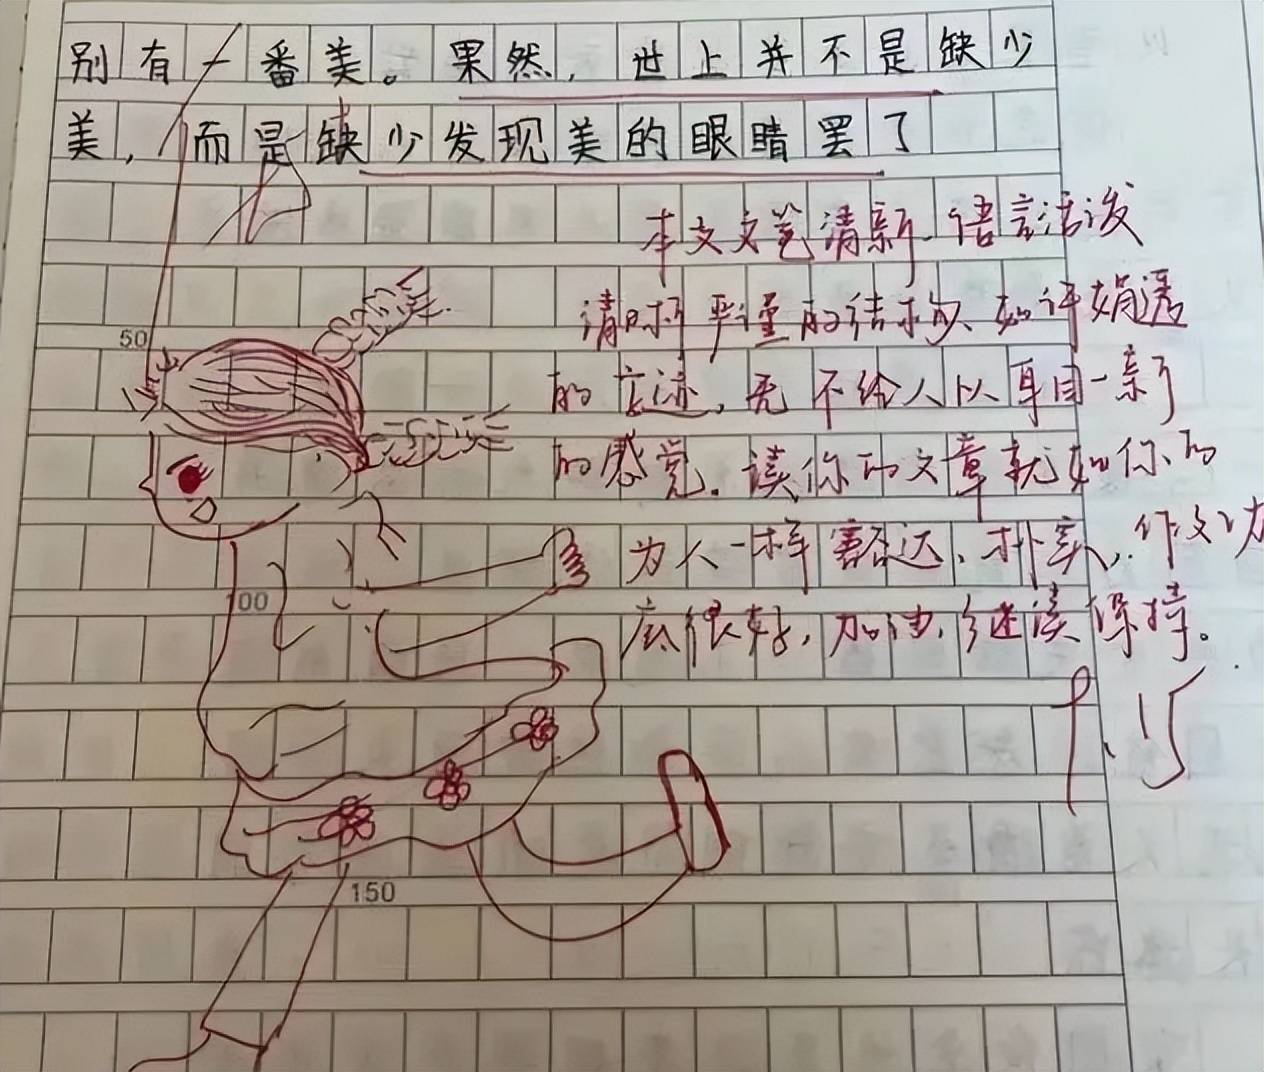 别有一番美。果然，世上并不是缺少
美，而是缺少发现美的眼睛罢了
本文文笔清新 语言活泼
清晰严谨的结构、如评娟透
的言迹，无不给人以耳目一新
的感觉。读你的文章就如你的
50
为人一样豁达、朴实，作文功
100
底很好，加油，继续保持。
150